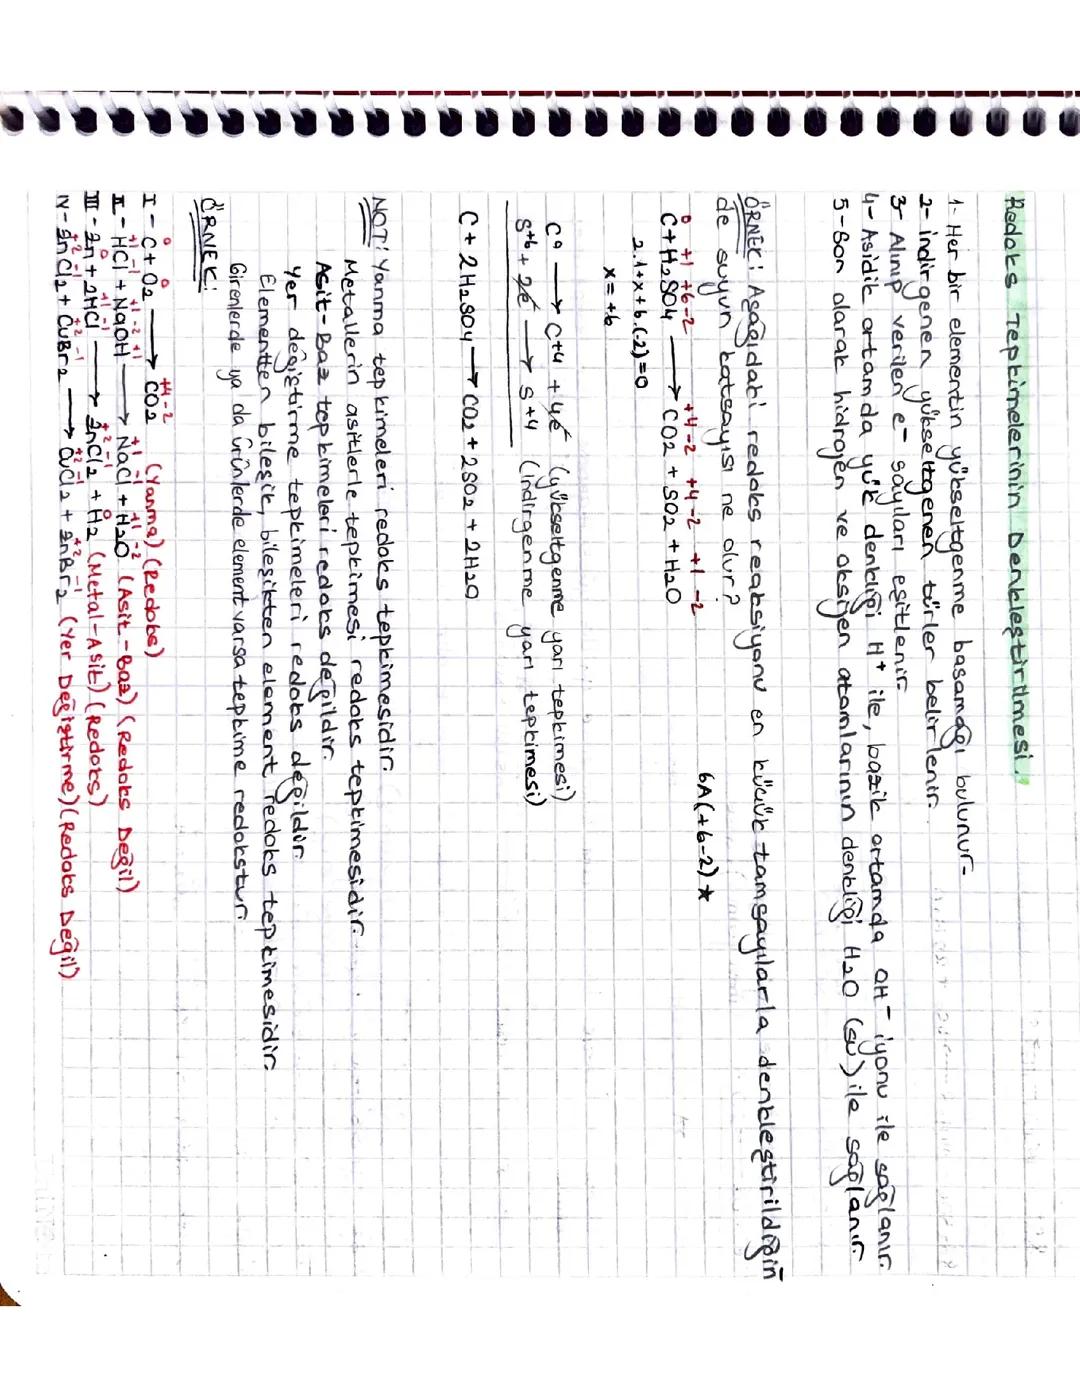 Redoks Tepkimelerinin Denkleştirilmesi.
1- Her bir elementin yükseltgenme basamağı bulunur-
2- indirgenen yükseltgenen türler belirlenir.
3- Alınıp verilen e⁻ sayıları eşitlenir.
4- Asidik ortamda yük denkliği H⁺ ile, bazik ortamda OH⁻ iyonu ile sağlanır.
5- Son olarak hidrojen ve oksijen atomlarının denkliği H2O (su) ile sağlanır.
ÖRNEK: Aşağıdaki redoks reaksiyonu en küçük tamsayılarla denkleştirildiğin
de suyun katsayısı ne olur?
0 +1 +6 -2 +4 -2 +4 -2 +1 -2
C + H2SO4 → CO2 + SO2 + H2O
6A(+6-2) ★
2.1+x+4.(-2)=0
x=+6
C⁰ → C+4 + 4e⁻ (yükseltgenme yarı tepkimesi)
S+6 + 2e⁻ → S+4 (indirgenme yarı tepkimesi)
C + 2H2SO4 → CO2 + 2SO2 + 2H2O
NOT: Yanma tepkimeleri redoks tepkimesidir.
Metallerin asitlerle tepkimesi redoks tepkimesidir.
Asit-Baz tepkimeleri redoks değildir.
Yer değiştirme tepkimeleri redoks değildir.
Elementten bileşik, bileşikten element redoks tepkimesidir.
Girenlerde ya da ürünlerde element varsa tepkime redokstur.
ÖRNEK:
0 0 +4 -2
I - C + O2 → CO2 (Yanma) (Redoks)
+1 -1 +1 -2 +1 +1 -1 +1 -2
II - HCl + NaOH → NaCl + H2O (Asit-Baz) (Redoks Değil)
0 +1 -1 +2 -1 0
III - Zn + 2HCl → ZnCl2 + H2 (Metal-Asit) (Redoks)
+2 -1 +2 -1 +2 -1 +2 -1
IV - ZnCl2 + CuBr2 → CuCl2 + ZnBr2 (Yer Değiştirme) (Redoks Değil)